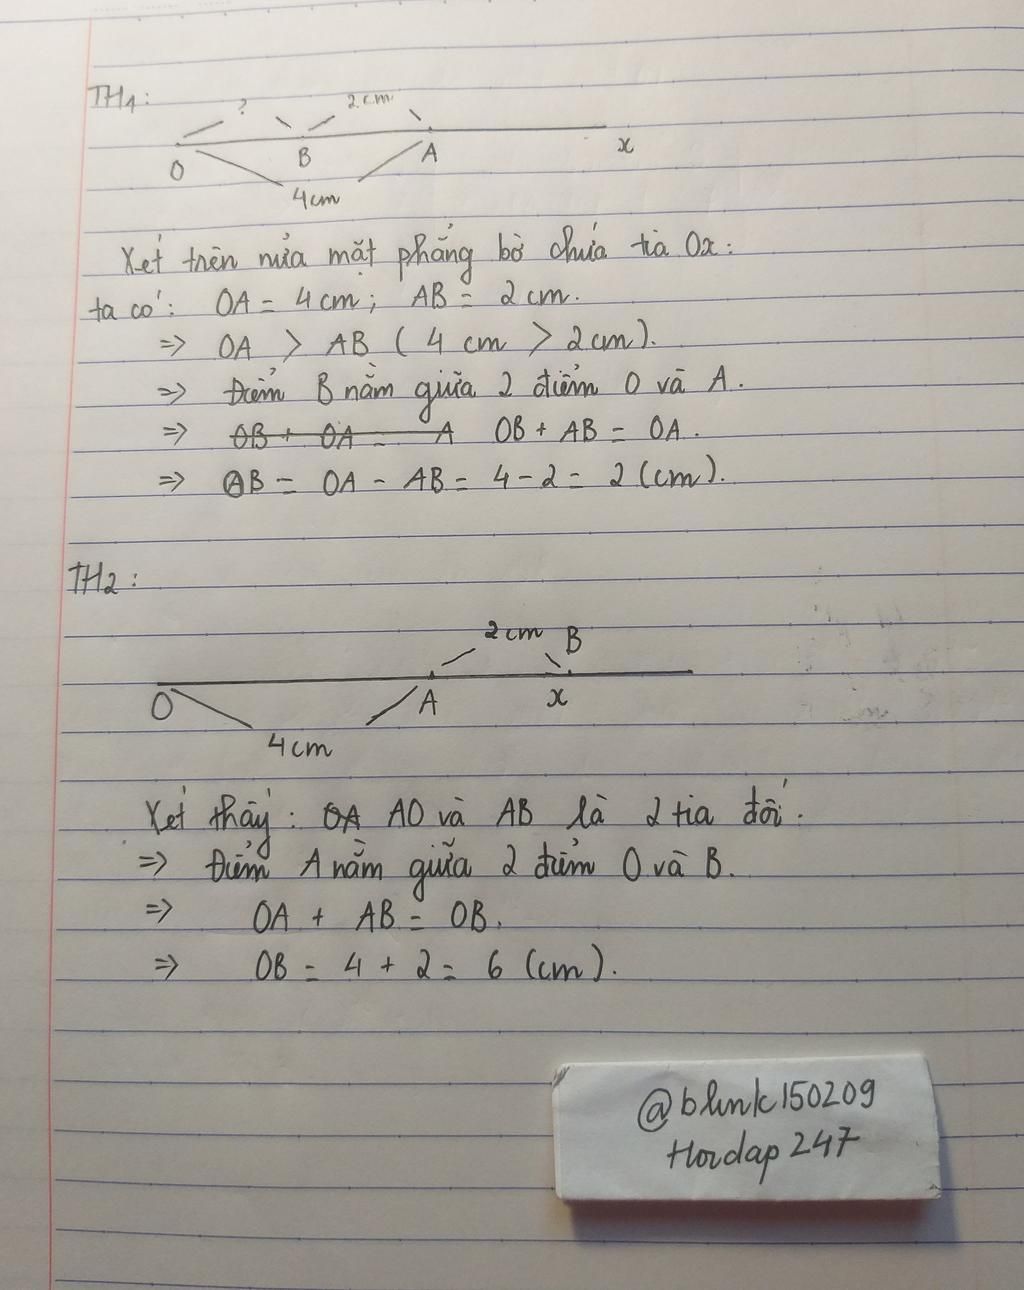 TH1:
? 2 cm
O B A x
4cm
Xét trên nửa mặt phẳng bờ chứa tia Ox:
ta có: OA = 4 cm; AB = 2 cm.
=> OA > AB ( 4 cm > 2 cm).
=> Điểm B nằm giữa 2 điểm O và A.
=> OB + OA = A OB + AB = OA.
=> OB = OA - AB = 4 - 2 = 2 (cm).
TH2:
2 cm B
O A x
4 cm
Xét thấy: OA AO và AB là 2 tia đối.
=> Điểm A nằm giữa 2 điểm O và B.
=> OA + AB = OB.
=> OB = 4 + 2 = 6 (cm).
@blink150209
Hoidap 247